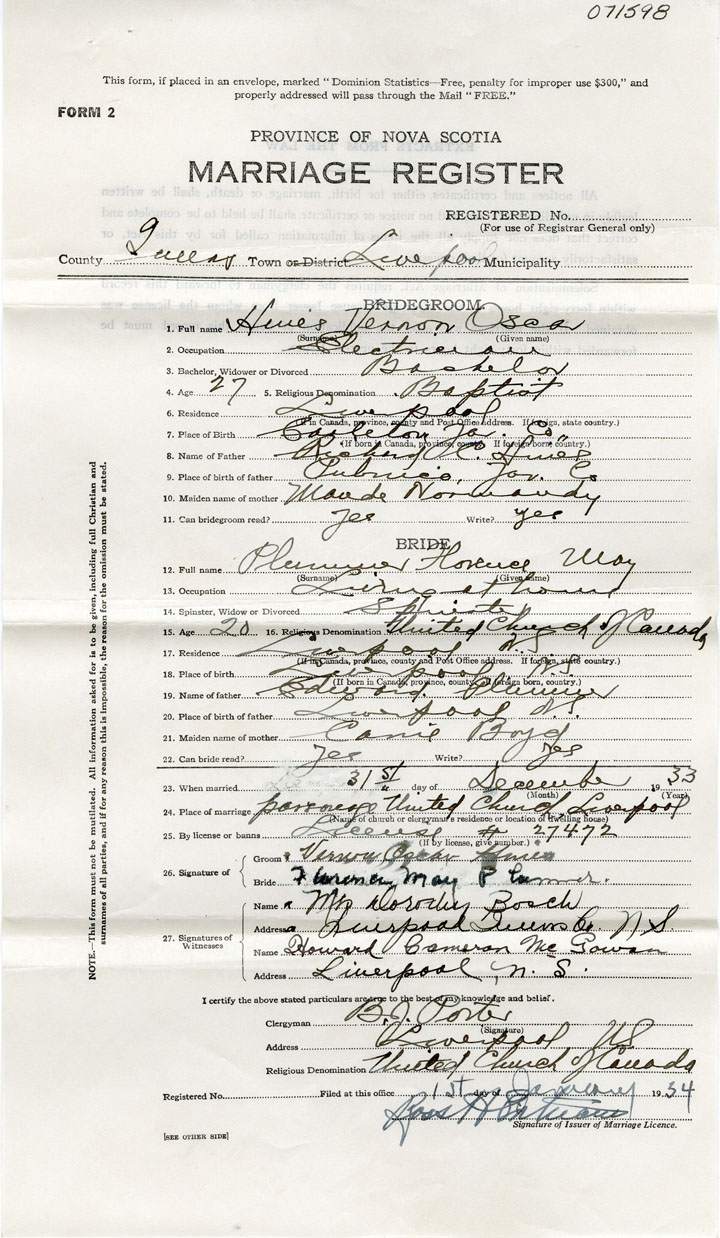 071598
This form, if placed in an envelope, marked "Dominion Statistics—Free, penalty for improper use $300," and
properly addressed will pass through the Mail "FREE."
FORM 2
PROVINCE OF NOVA SCOTIA
MARRIAGE REGISTER
REGISTERED No.
(For use of Registrar General only)
County Queens Town or District Liverpool Municipality
BRIDEGROOM
1. Full name Hines Vernon Oscar
(Surname) (Given name)
2. Occupation Electrician
3. Bachelor, Widower or Divorced Bachelor
4. Age 27 5. Religious Denomination Baptist
6. Residence Liverpool
(If in Canada, province, county and Post Office address. If foreign, state country.)
7. Place of Birth Carleton Yar. Co.
(If born in Canada, province, county. If foreign born, country.)
8. Name of Father Richard Hines
9. Place of birth of father Pubnico, Yar. Co
10. Maiden name of mother Maude Normandy
11. Can bridegroom read? Yes Write? yes
BRIDE
12. Full name Plummer Florence May
(Surname) (Given name)
13. Occupation Living at home
14. Spinster, Widow or Divorced Spinster
15. Age 20 16. Religious Denomination United Church of Canada
17. Residence Liverpool N.S.
(If in Canada, province, county and Post Office address. If foreign, state country.)
18. Place of birth Liverpool N.S.
(If born in Canada, province, county. If foreign born, country.)
19. Name of father Edward Plummer
20. Place of birth of father Liverpool N.S.
21. Maiden name of mother Boyd
22. Can bride read? Yes Write? Yes
23. When married 31st day of December 1933
(Month) (Year)
24. Place of marriage parsonage United Church Liverpool
(Name of church or clergyman's residence or location of dwelling house)
25. By license or banns License # 27472
(If by license, give number.)
26. Signature of
Groom Vernon Oscar Hines
Bride Florence May Plummer.
27. Signatures of
Witnesses
Name Mrs Dorothy Bosch
Address Liverpool Queens Co N.S.
Name Howard Cameron McGowan
Address Liverpool, N. S.
I certify the above stated particulars are true to the best of my knowledge and belief.
Clergyman B.J. Porter
(Signature)
Address Liverpool N.S.
Religious Denomination United Church of Canada
Registered No. Filed at this office 1st day of January 1934
Signature of Issuer of Marriage Licence.
[SEE OTHER SIDE]
NOTE.—This form must not be mutilated. All information asked for is to be given, including full Christian and
surnames of all parties, and if for any reason this is impossible, the reason for the omission must be stated.